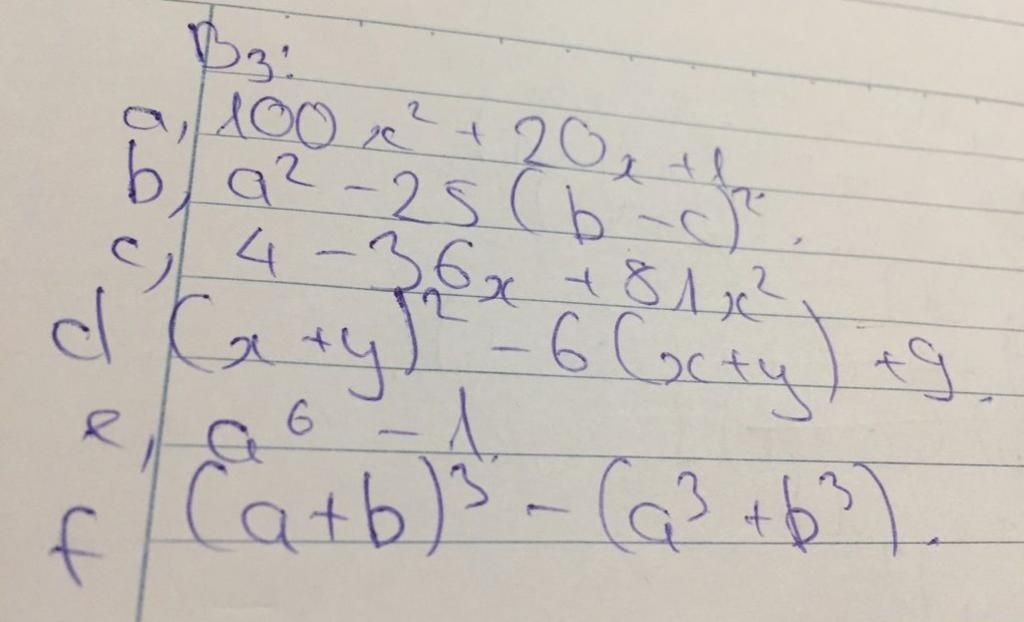 B3:
a, 100x² + 20x + 1
b, a² - 25(b - c)².
c, 4 - 36x + 81x²
d (x + y)² - 6(x + y) + 9.
e, a⁶ - 1.
f (a + b)³ - (a³ + b³).